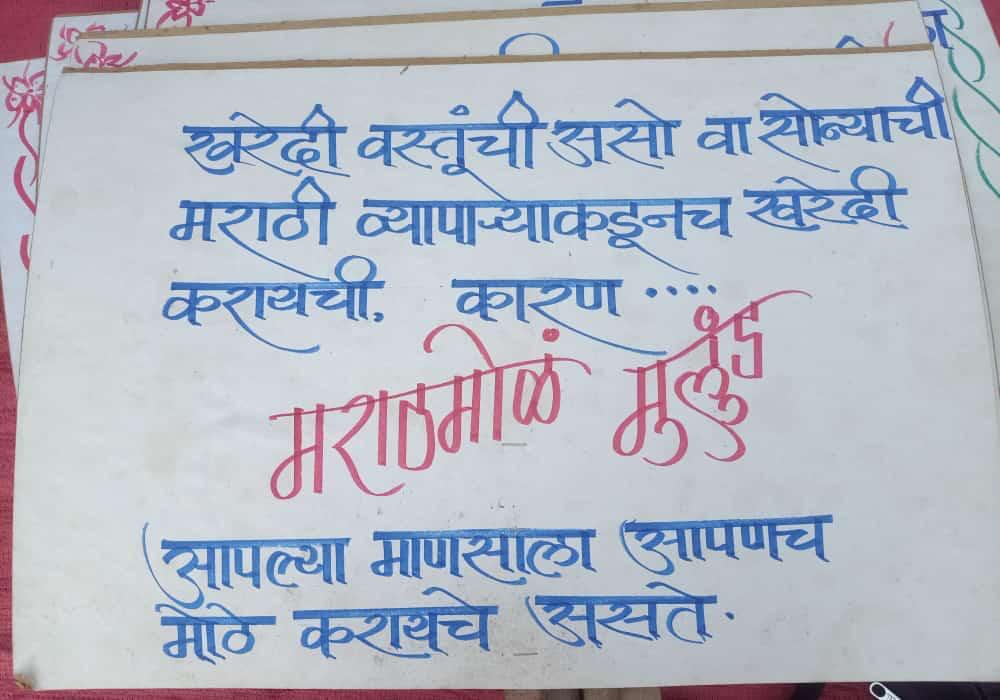 खरेदी वस्तूंची असो वा सोन्याची
मराठी व्यापाऱ्याकडूनच खरेदी
करायची. कारण ....
मराठमोळं मुलुंड
आपल्या माणसाला आपणच
मोठे करायचे असते.